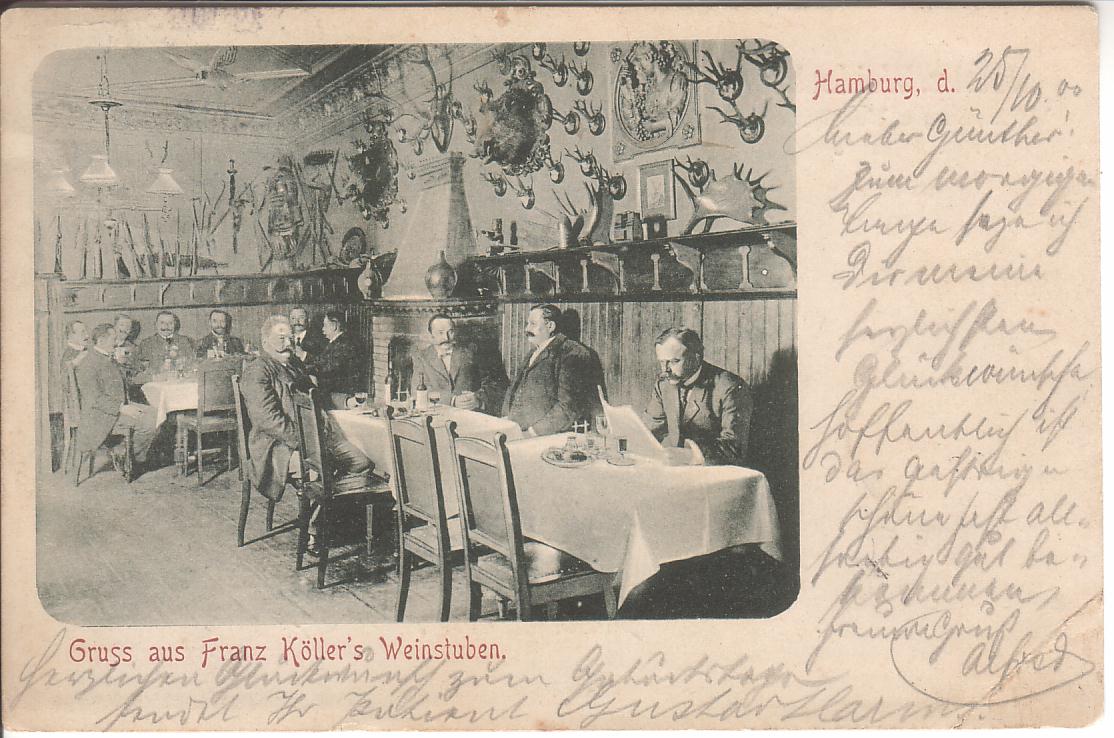 Hamburg, d. 25/10.00
Lieber Günther!
Zum morgigen
Tage sage ich
Dir meine
herzlichsten
Glückwünsche
Hoffentlich ist
das gestrige
schöne Fest all-
seitig gut be-
kommen,
Gruß
Alfred
Gruss aus Franz Köller's Weinstuben.
Herzlichen Glückwunsch zum Geburtstage
sendet Ihr Patient Gustav